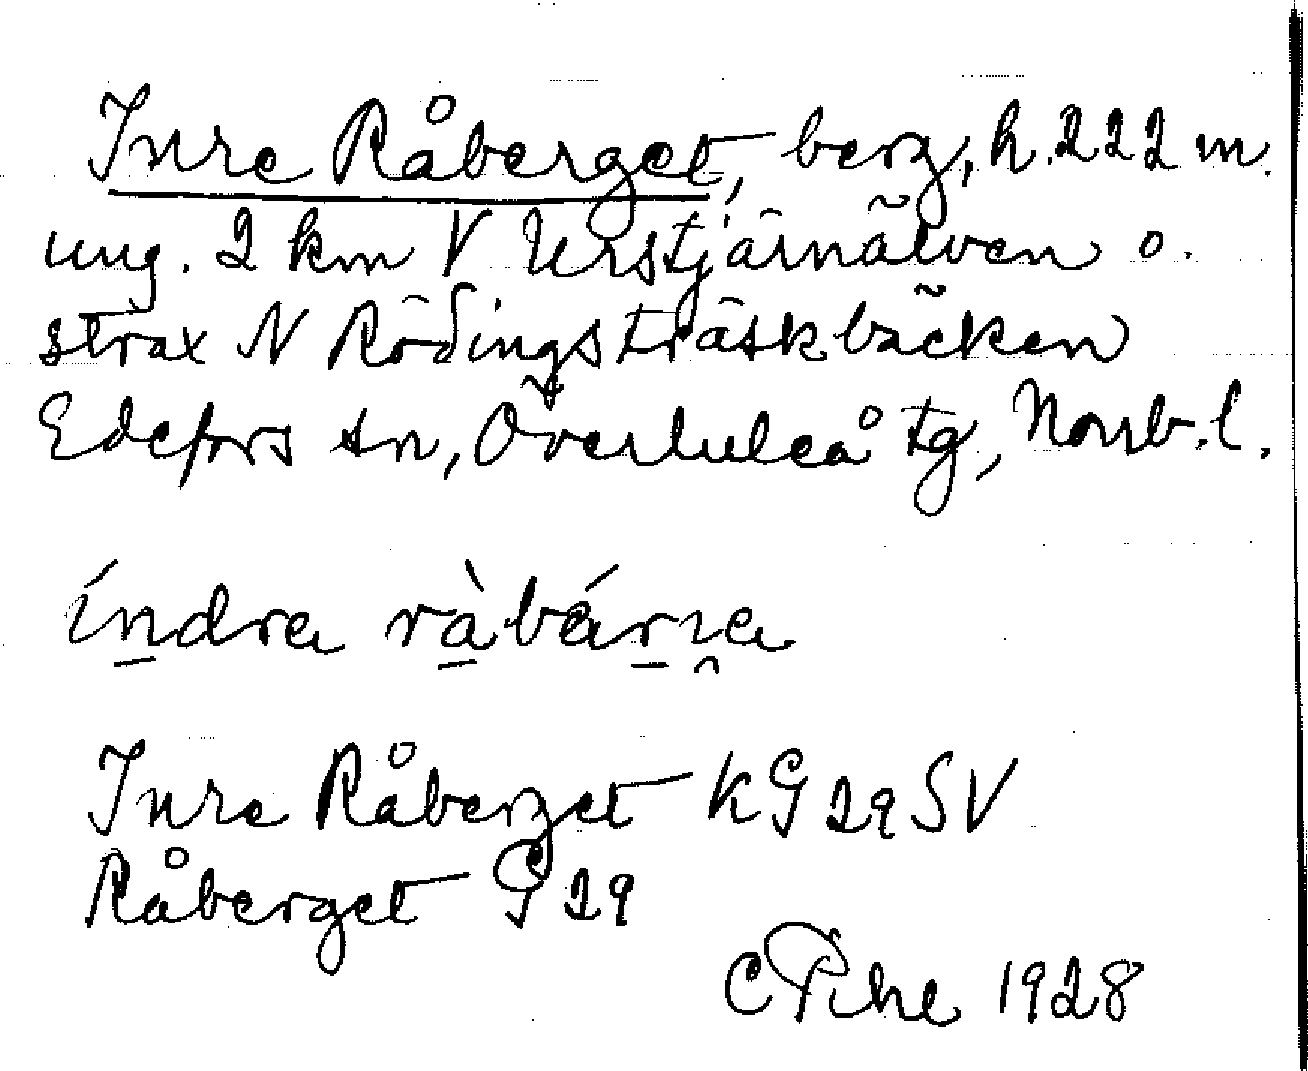 Inre Råberget, berg, h. 222 m.
ung. 2 km V Urstjärnälven o.
strax N Rödingsträskbäcken
Edefors sn, Överluleå tg, Norrb. l.
índra rå̀bárȵa
Inre Råberget KG 29 SV
Råberget G 29
C Pihl 1928